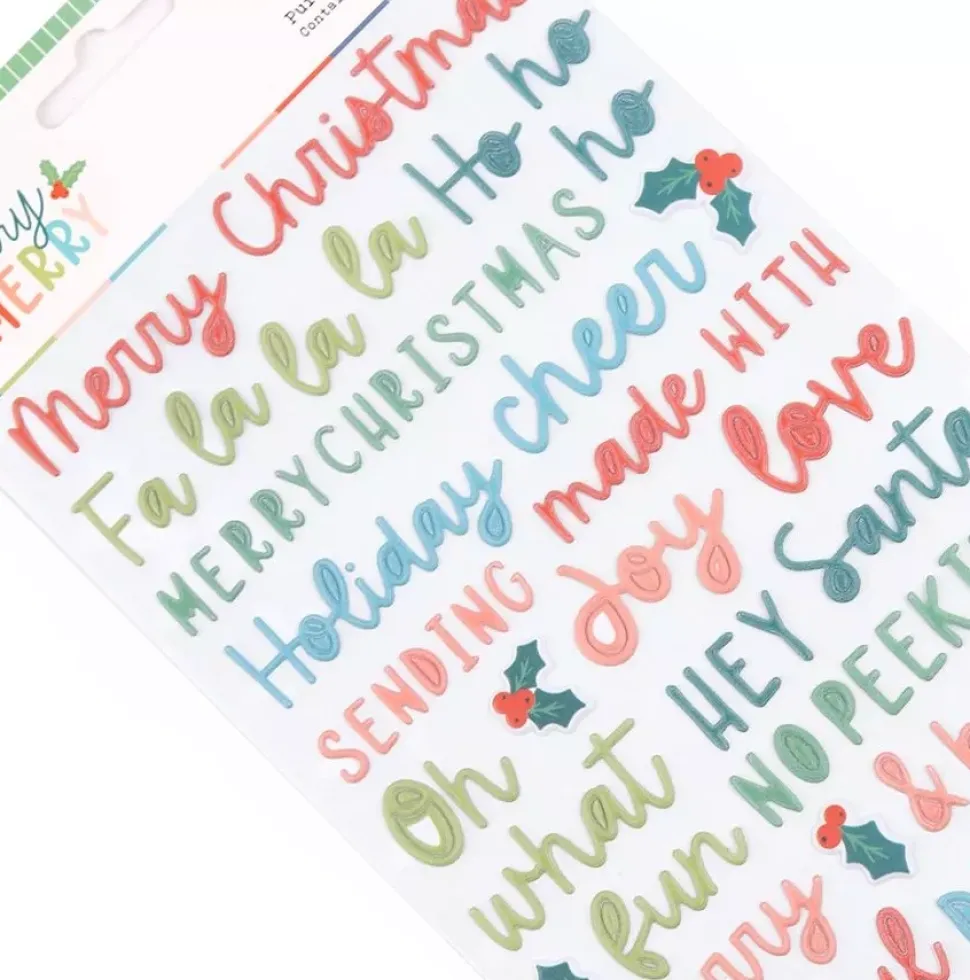 MERRY
Merry Christmas
Fa la la la la
Ho ho
ho
MERRY CHRISTMAS
Holiday cheer
made WITH
love
SENDING
Joy
HEY Santa
NO PEEKI
Oh
what
fun
&